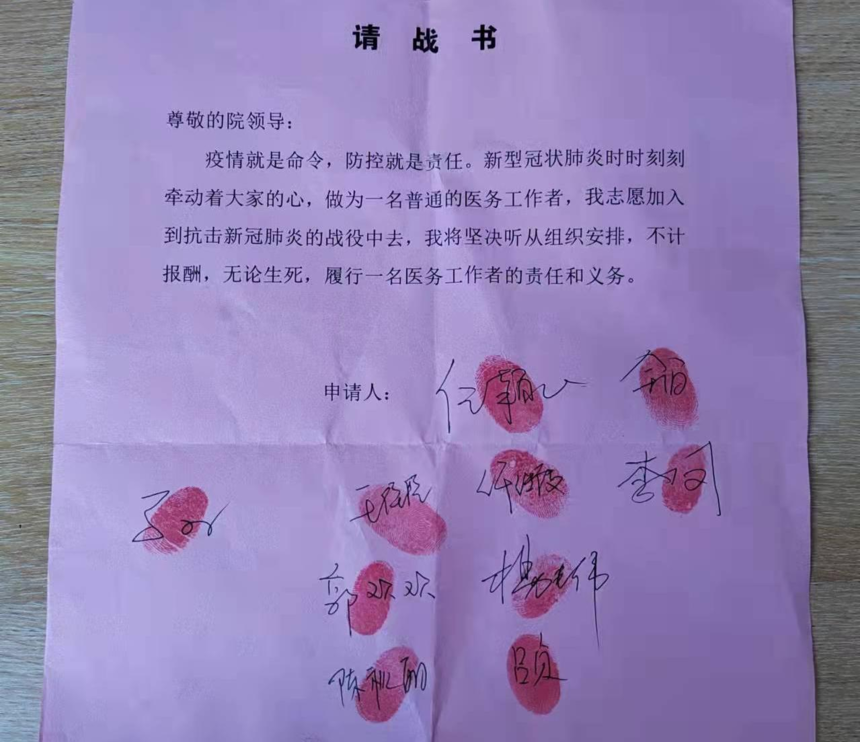 请战书
尊敬的院领导：
疫情就是命令，防控就是责任。新型冠状肺炎时时刻刻
牵动着大家的心，做为一名普通的医务工作者，我志愿加入
到抗击新冠肺炎的战役中去，我将坚决听从组织安排，不计
报酬，无论生死，履行一名医务工作者的责任和义务。
申请人：
郭欢欢
吕贞